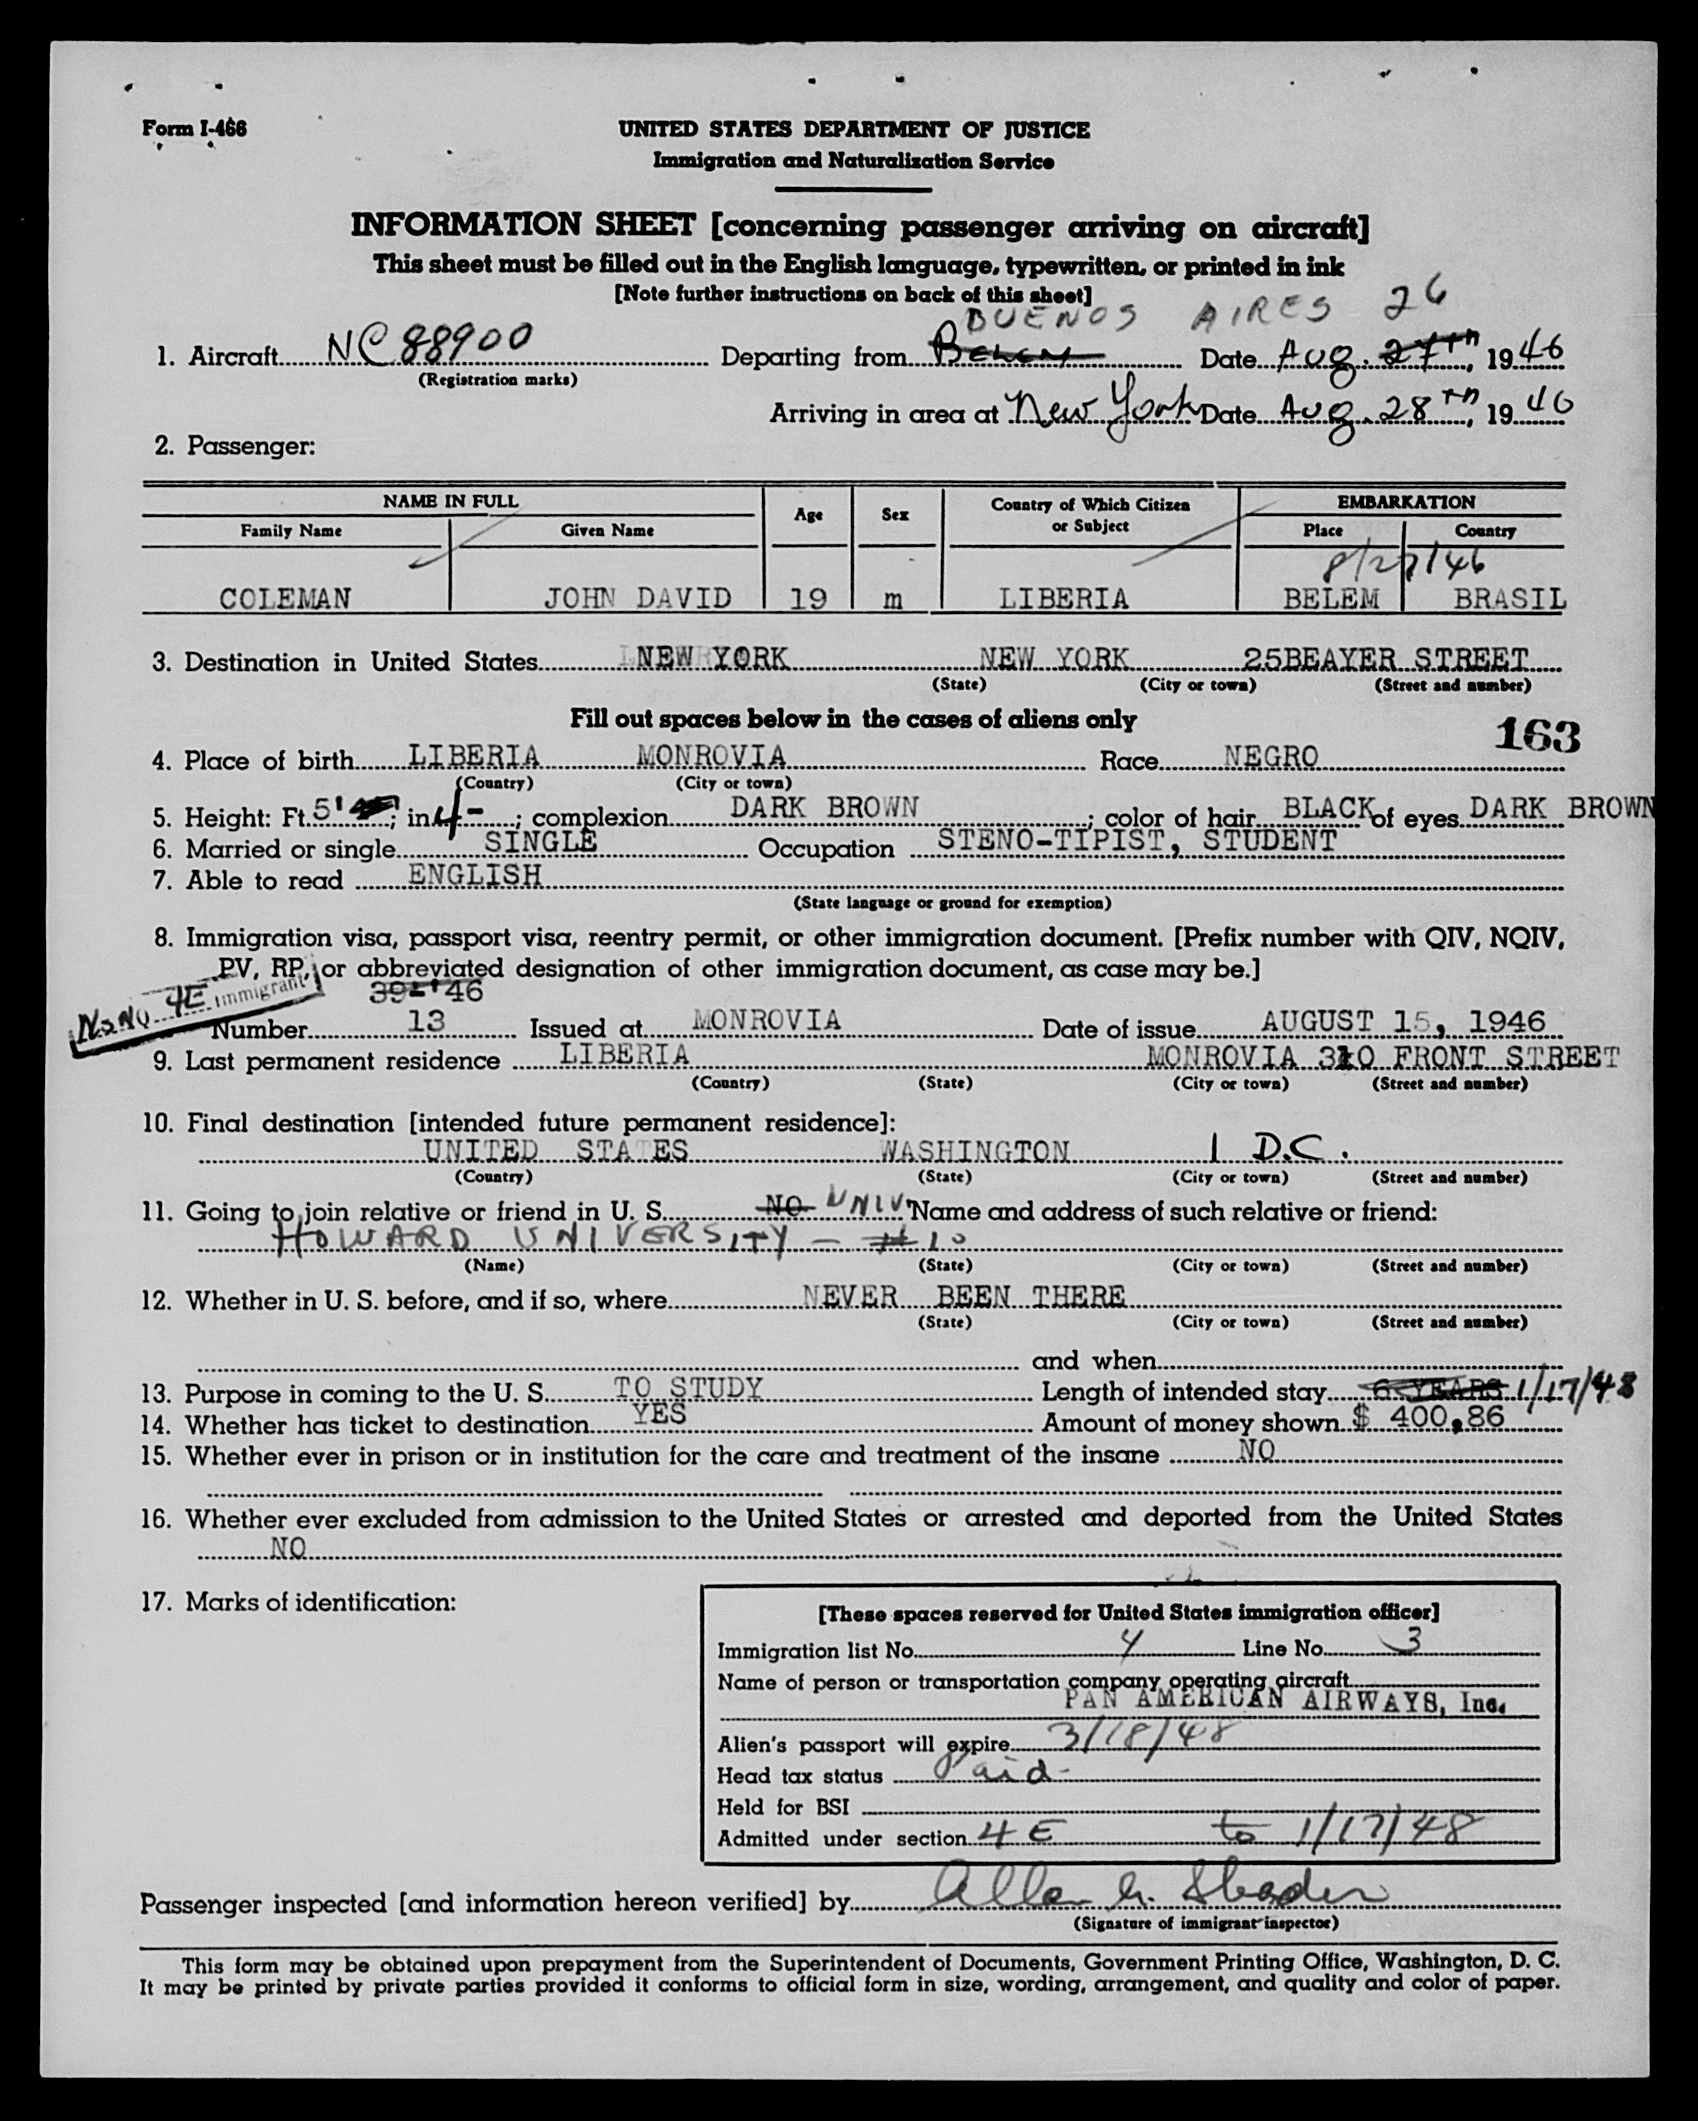 Form I-466
UNITED STATES DEPARTMENT OF JUSTICE
Immigration and Naturalization Service
INFORMATION SHEET [concerning passenger arriving on aircraft]
This sheet must be filled out in the English language, typewritten, or printed in ink
[Note further instructions on back of this sheet]
BUENOS AIRES 26
1. Aircraft NC 88900 Departing from Belem Date Aug. 27th, 1946
(Registration marks)
Arriving in area at New York Date Aug. 28th, 1946
2. Passenger:
NAME IN FULL Age Sex Country of Which Citizen or Subject EMBARKATION
Family Name Given Name Place Country
8/27/46
COLEMAN JOHN DAVID 19 m LIBERIA BELEM BRASIL
3. Destination in United States NEW YORK NEW YORK 25BEAYER STREET
(State) (City or town) (Street and number)
Fill out spaces below in the cases of aliens only
163
4. Place of birth LIBERIA MONROVIA Race NEGRO
(Country) (City or town)
5. Height: Ft. 5' ; in. 4- ; complexion DARK BROWN ; color of hair BLACK of eyes DARK BROWN
6. Married or single SINGLE Occupation STENO-TIPIST, STUDENT
7. Able to read ENGLISH
(State language or ground for exemption)
8. Immigration visa, passport visa, reentry permit, or other immigration document. [Prefix number with QIV, NQIV,
PV, RP, or abbreviated designation of other immigration document, as case may be.]
4E immigrant 39-'46
Number 13 Issued at MONROVIA Date of issue AUGUST 15, 1946
9. Last permanent residence LIBERIA MONROVIA 310 FRONT STREET
(Country) (State) (City or town) (Street and number)
10. Final destination [intended future permanent residence]:
UNITED STATES WASHINGTON 1 D.C.
(Country) (State) (City or town) (Street and number)
11. Going to join relative or friend in U. S. NO UNIV. Name and address of such relative or friend:
HOWARD UNIVERSITY - # 10
(Name) (State) (City or town) (Street and number)
12. Whether in U. S. before, and if so, where NEVER BEEN THERE
(State) (City or town) (Street and number)
and when
13. Purpose in coming to the U. S. TO STUDY Length of intended stay 6 YEARS 1/17/48
14. Whether has ticket to destination YES Amount of money shown $ 400.86
15. Whether ever in prison or in institution for the care and treatment of the insane NO
16. Whether ever excluded from admission to the United States or arrested and deported from the United States
NO
17. Marks of identification:
[These spaces reserved for United States immigration officer]
Immigration list No. 4 Line No. 3
Name of person or transportation company operating aircraft
PAN AMERICAN AIRWAYS, Inc.
Alien's passport will expire 3/18/48
Head tax status Paid-
Held for BSI
Admitted under section 4E to 1/17/48
Passenger inspected [and information hereon verified] by
(Signature of immigrant inspector)
This form may be obtained upon prepayment from the Superintendent of Documents, Government Printing Office, Washington, D. C.
It may be printed by private parties provided it conforms to official form in size, wording, arrangement, and quality and color of paper.